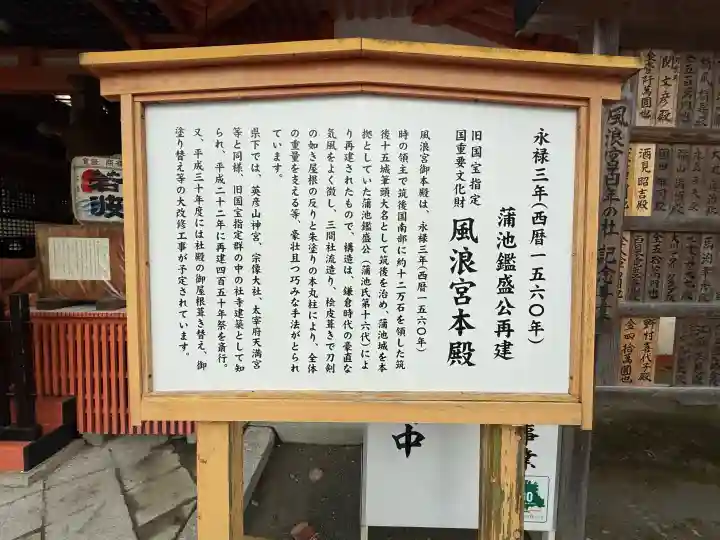 永禄三年(西暦一五六〇年)
蒲池鑑盛公再建
旧国宝指定
国重要文化財
風浪宮本殿
風浪宮御本殿は、永禄三年(西暦一五六〇年)
時の領主で筑後国南部に約十二万石を領した筑
後十五城筆頭大名として筑後を治め、蒲池城を本
拠としていた蒲池鑑盛公(蒲池氏第十六代)によ
り再建されたもので、構造は、鎌倉時代の豪直な
気風をよく徴し、三間社流造り、桧皮葺きで刀剣
の如き屋根の反りと朱塗りの本丸柱により、全体
の重量を支える等、豪壮且つ巧みな手法がとられ
ています。
県下では、英彦山神宮、宗像大社、太宰府天満宮
等と同様、旧国宝指定群の中の社寺建築として知
られ、平成二十二年に再建四百五十年祭を斎行。
又、平成三十年度には社殿の御屋根葺き替え、御
塗り替え等の大改修工事が予定されています。
風浪宮百年の杜 記念事業
酒見昭吉殿
野村喜代子殿
金四拾萬圓也
中
事業